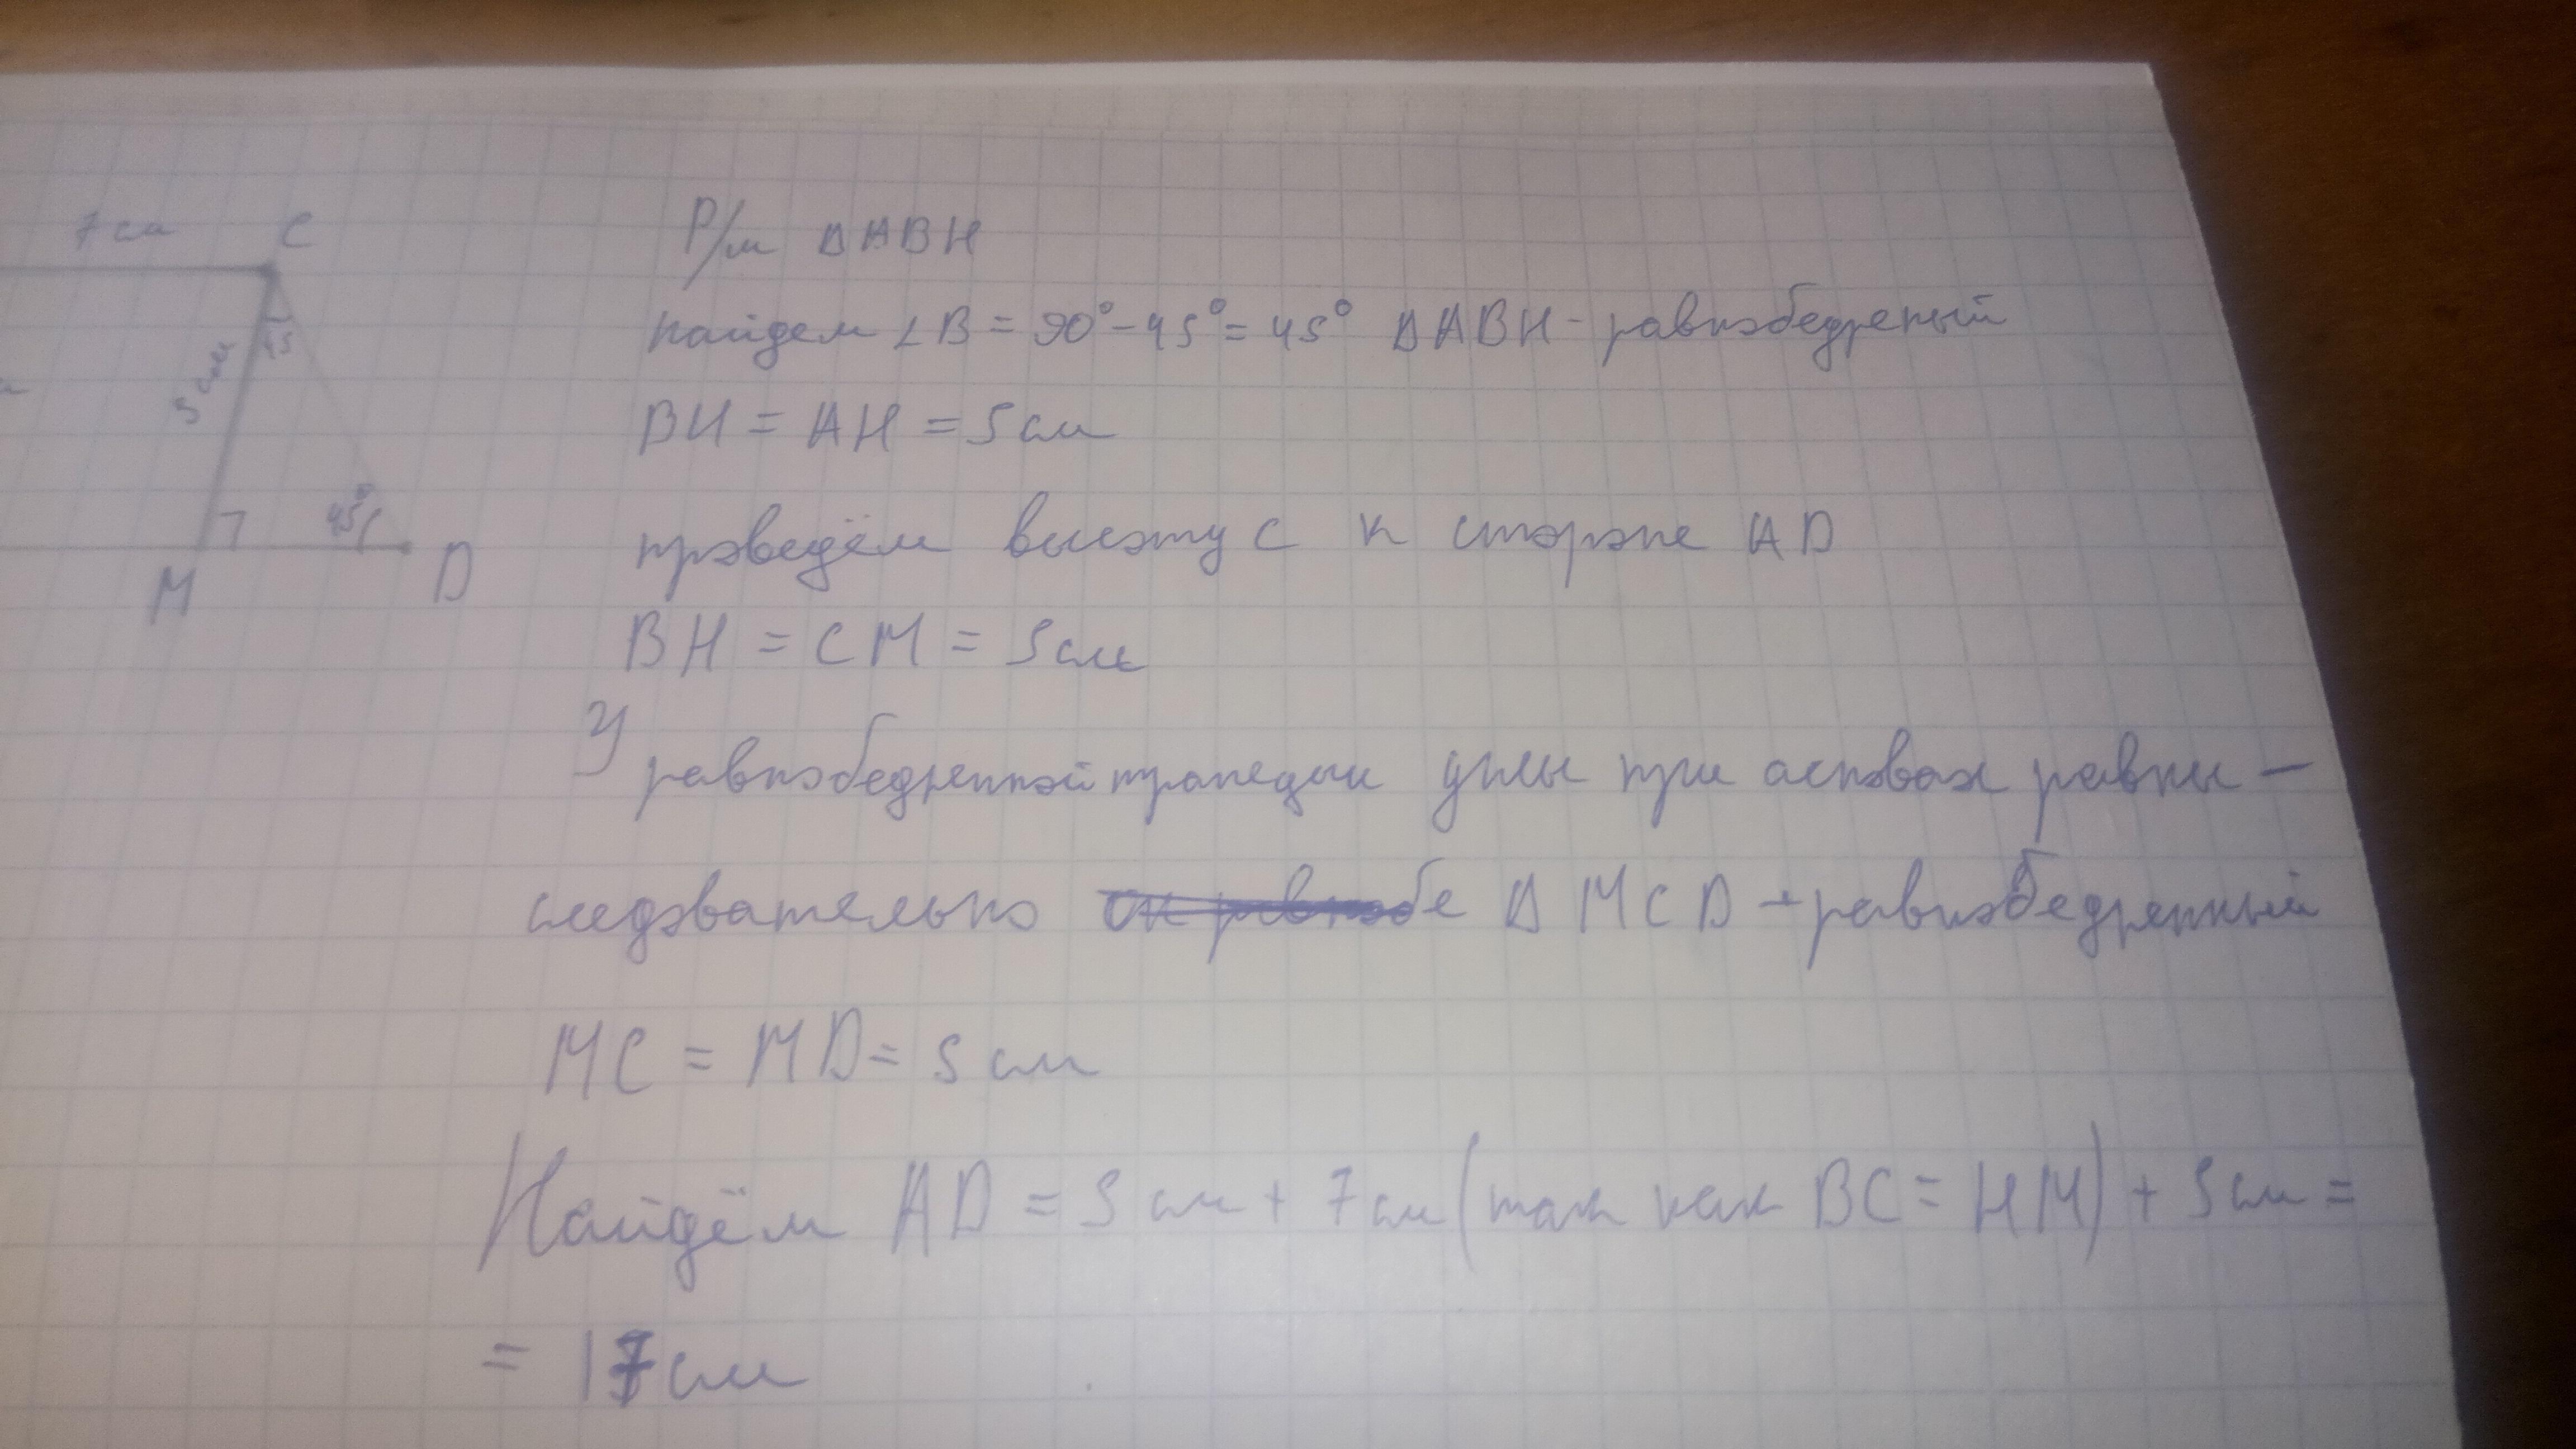 7 см C
Р/м ΔABH
найдем ∠B = 90° - 45° = 45° ΔABH - равнобедреный
5 см
45
BH = AH = 5 см
45°
проведём высоту C к стороне AD
M D
BH = CM = 5 см
У равнобедренной трапеции углы при основах равны -
следовательно Δ MCD - равнобедренный
MC = MD = 5 см
Найдём AD = 5 см + 7 см (так как BC = HM) + 5 см =
= 17 см